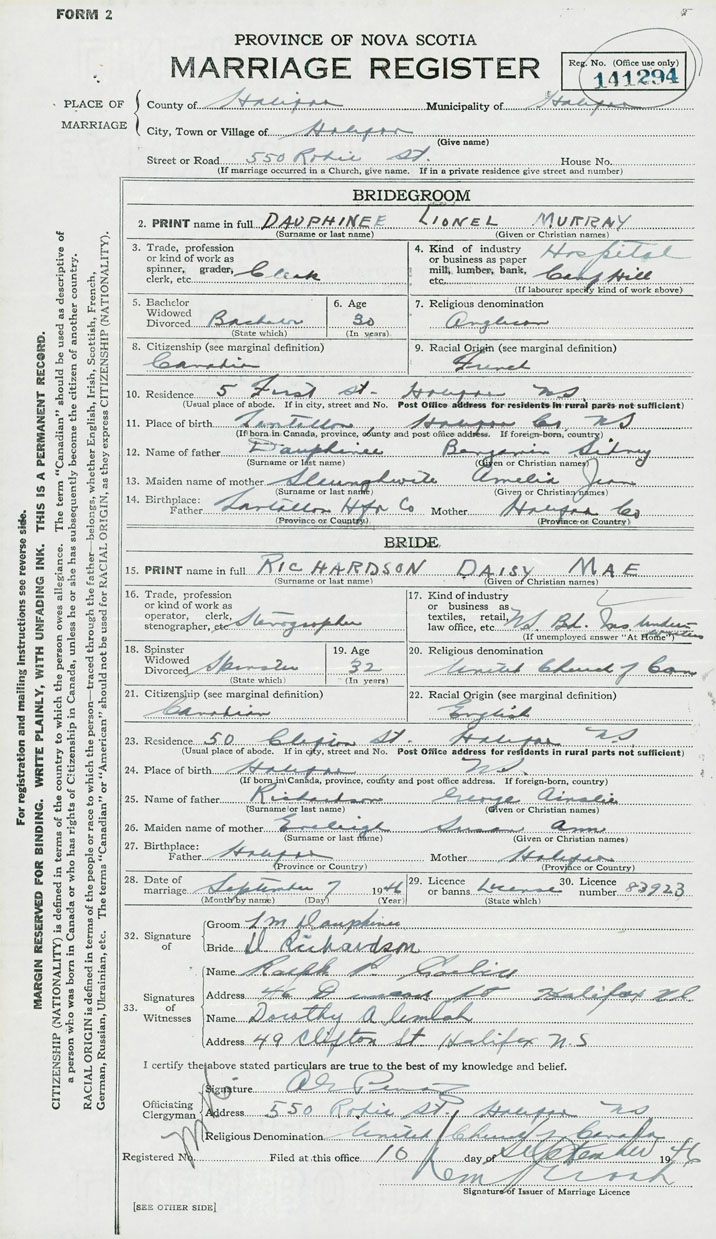 FORM 2
PROVINCE OF NOVA SCOTIA
MARRIAGE REGISTER
Reg. No. (Office use only)
141294
PLACE OF MARRIAGE
County of Halifax Municipality of Halifax
City, Town or Village of Halifax
(Give name)
Street or Road 550 Robie St. House No.
(If marriage occurred in a Church, give name. If in a private residence give street and number)
BRIDEGROOM
2. PRINT name in full DAUPHINEE LIONEL MURRAY
(Surname or last name) (Given or Christian names)
3. Trade, profession or kind of work as spinner, grader, clerk, etc. Clerk
4. Kind of industry or business as paper mill, lumber, bank, etc. Hospital Camp Hill
(If labourer specify kind of work above)
5. Bachelor Widowed Divorced Bachelor
(State which)
6. Age 30
(In years)
7. Religious denomination
Anglican
8. Citizenship (see marginal definition)
Canadian
9. Racial Origin (see marginal definition)
French
10. Residence 5 First St. Halifax NS
(Usual place of abode. If in city, street and No. Post Office address for residents in rural parts not sufficient)
11. Place of birth Halifax Co NS
(If born in Canada, province, county and post office address. If foreign-born, country)
12. Name of father Dauphinee Benjamin Sidney
(Surname or last name) (Given or Christian names)
13. Maiden name of mother Slaunwhite Amelia Jean
(Surname or last name) (Given or Christian names)
14. Birthplace: Father Hfx Co Mother Halifax Co
(Province or Country) (Province or Country)
BRIDE
15. PRINT name in full RICHARDSON DAISY MAE
(Surname or last name) (Given or Christian names)
16. Trade, profession or kind of work as operator, clerk, stenographer, etc Stenographer
17. Kind of industry or business as textiles, retail, law office, etc. NS. Bd. Ins Underwriters
(If unemployed answer "At Home")
18. Spinster Widowed Divorced Spinster
(State which)
19. Age 32
(In years)
20. Religious denomination
United Church of Can
21. Citizenship (see marginal definition)
Canadian
22. Racial Origin (see marginal definition)
English
23. Residence 50 Clifton St. Halifax NS
(Usual place of abode. If in city, street and No. Post Office address for residents in rural parts not sufficient)
24. Place of birth Halifax NS.
(If born in Canada, province, county and post office address. If foreign-born, country)
25. Name of father Richardson George Ainslie
(Surname or last name) (Given or Christian names)
26. Maiden name of mother Susan Ann
(Surname or last name) (Given or Christian names)
27. Birthplace: Father Halifax Mother Halifax
(Province or Country) (Province or Country)
28. Date of marriage September 7 1946
(Month by name) (Day) (Year)
29. Licence or banns License
(State which)
30. Licence number 83923
32. Signature of
Groom L M Dauphinee
Bride D Richardson
33. Signatures of Witnesses
Name Ralph P.
Address 46 St Halifax N.S.
Name Dorothy A Umlah
Address 49 Clifton St Halifax N.S
I certify the above stated particulars are true to the best of my knowledge and belief.
Officiating Clergyman
Signature
Address 550 Robie St. Halifax NS
Religious Denomination United Church of Canada
Registered No. Filed at this office 10 day of September 1946
Signature of Issuer of Marriage Licence
[SEE OTHER SIDE]
For registration and mailing instructions see reverse side.
MARGIN RESERVED FOR BINDING. WRITE PLAINLY, WITH UNFADING INK. THIS IS A PERMANENT RECORD.
CITIZENSHIP (NATIONALITY) is defined in terms of the country to which the person owes allegiance. The term "Canadian" should be used as descriptive of
a person who was born in Canada or who has rights of Citizenship in Canada, unless he or she has subsequently become the citizen of another country.
RACIAL ORIGIN is defined in terms of the people or race to which the person—traced through the father—belongs, whether English, Irish, Scottish, French,
German, Russian, Ukrainian, etc. The terms "Canadian" or "American" should not be used for RACIAL ORIGIN, as they express CITIZENSHIP (NATIONALITY).